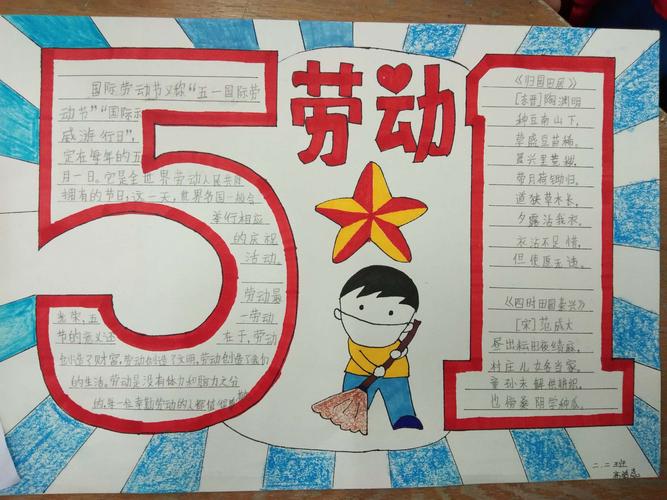 劳动
国际劳动节又称“五一国际劳
动节”“国际
威游行日”,
定在每年的五
月一日。它是全世界劳动人民共
拥有的节日,这一天,世界各国一般会
举行相应
的庆祝
活动。
劳动最
光荣,五一劳动
节的意义还在于,劳动
创造了财富,劳动创造了文明,劳动创造了我们
的生活。劳动是没有体力和脑力之分
的,每一位辛勤劳动的人都值
《归园田居》
[东晋]陶渊明
种豆南山下,
草盛豆苗稀。
晨兴理荒秽,
带月荷锄归。
道狭草木长,
夕露沾我衣。
衣沾不足惜,
但使愿无违。
《四时田园杂兴》
[宋]范成大
昼出耘田夜绩麻,
村庄儿女各当家。
童孙未解供耕织,
也傍桑阴学种瓜。
二.二班